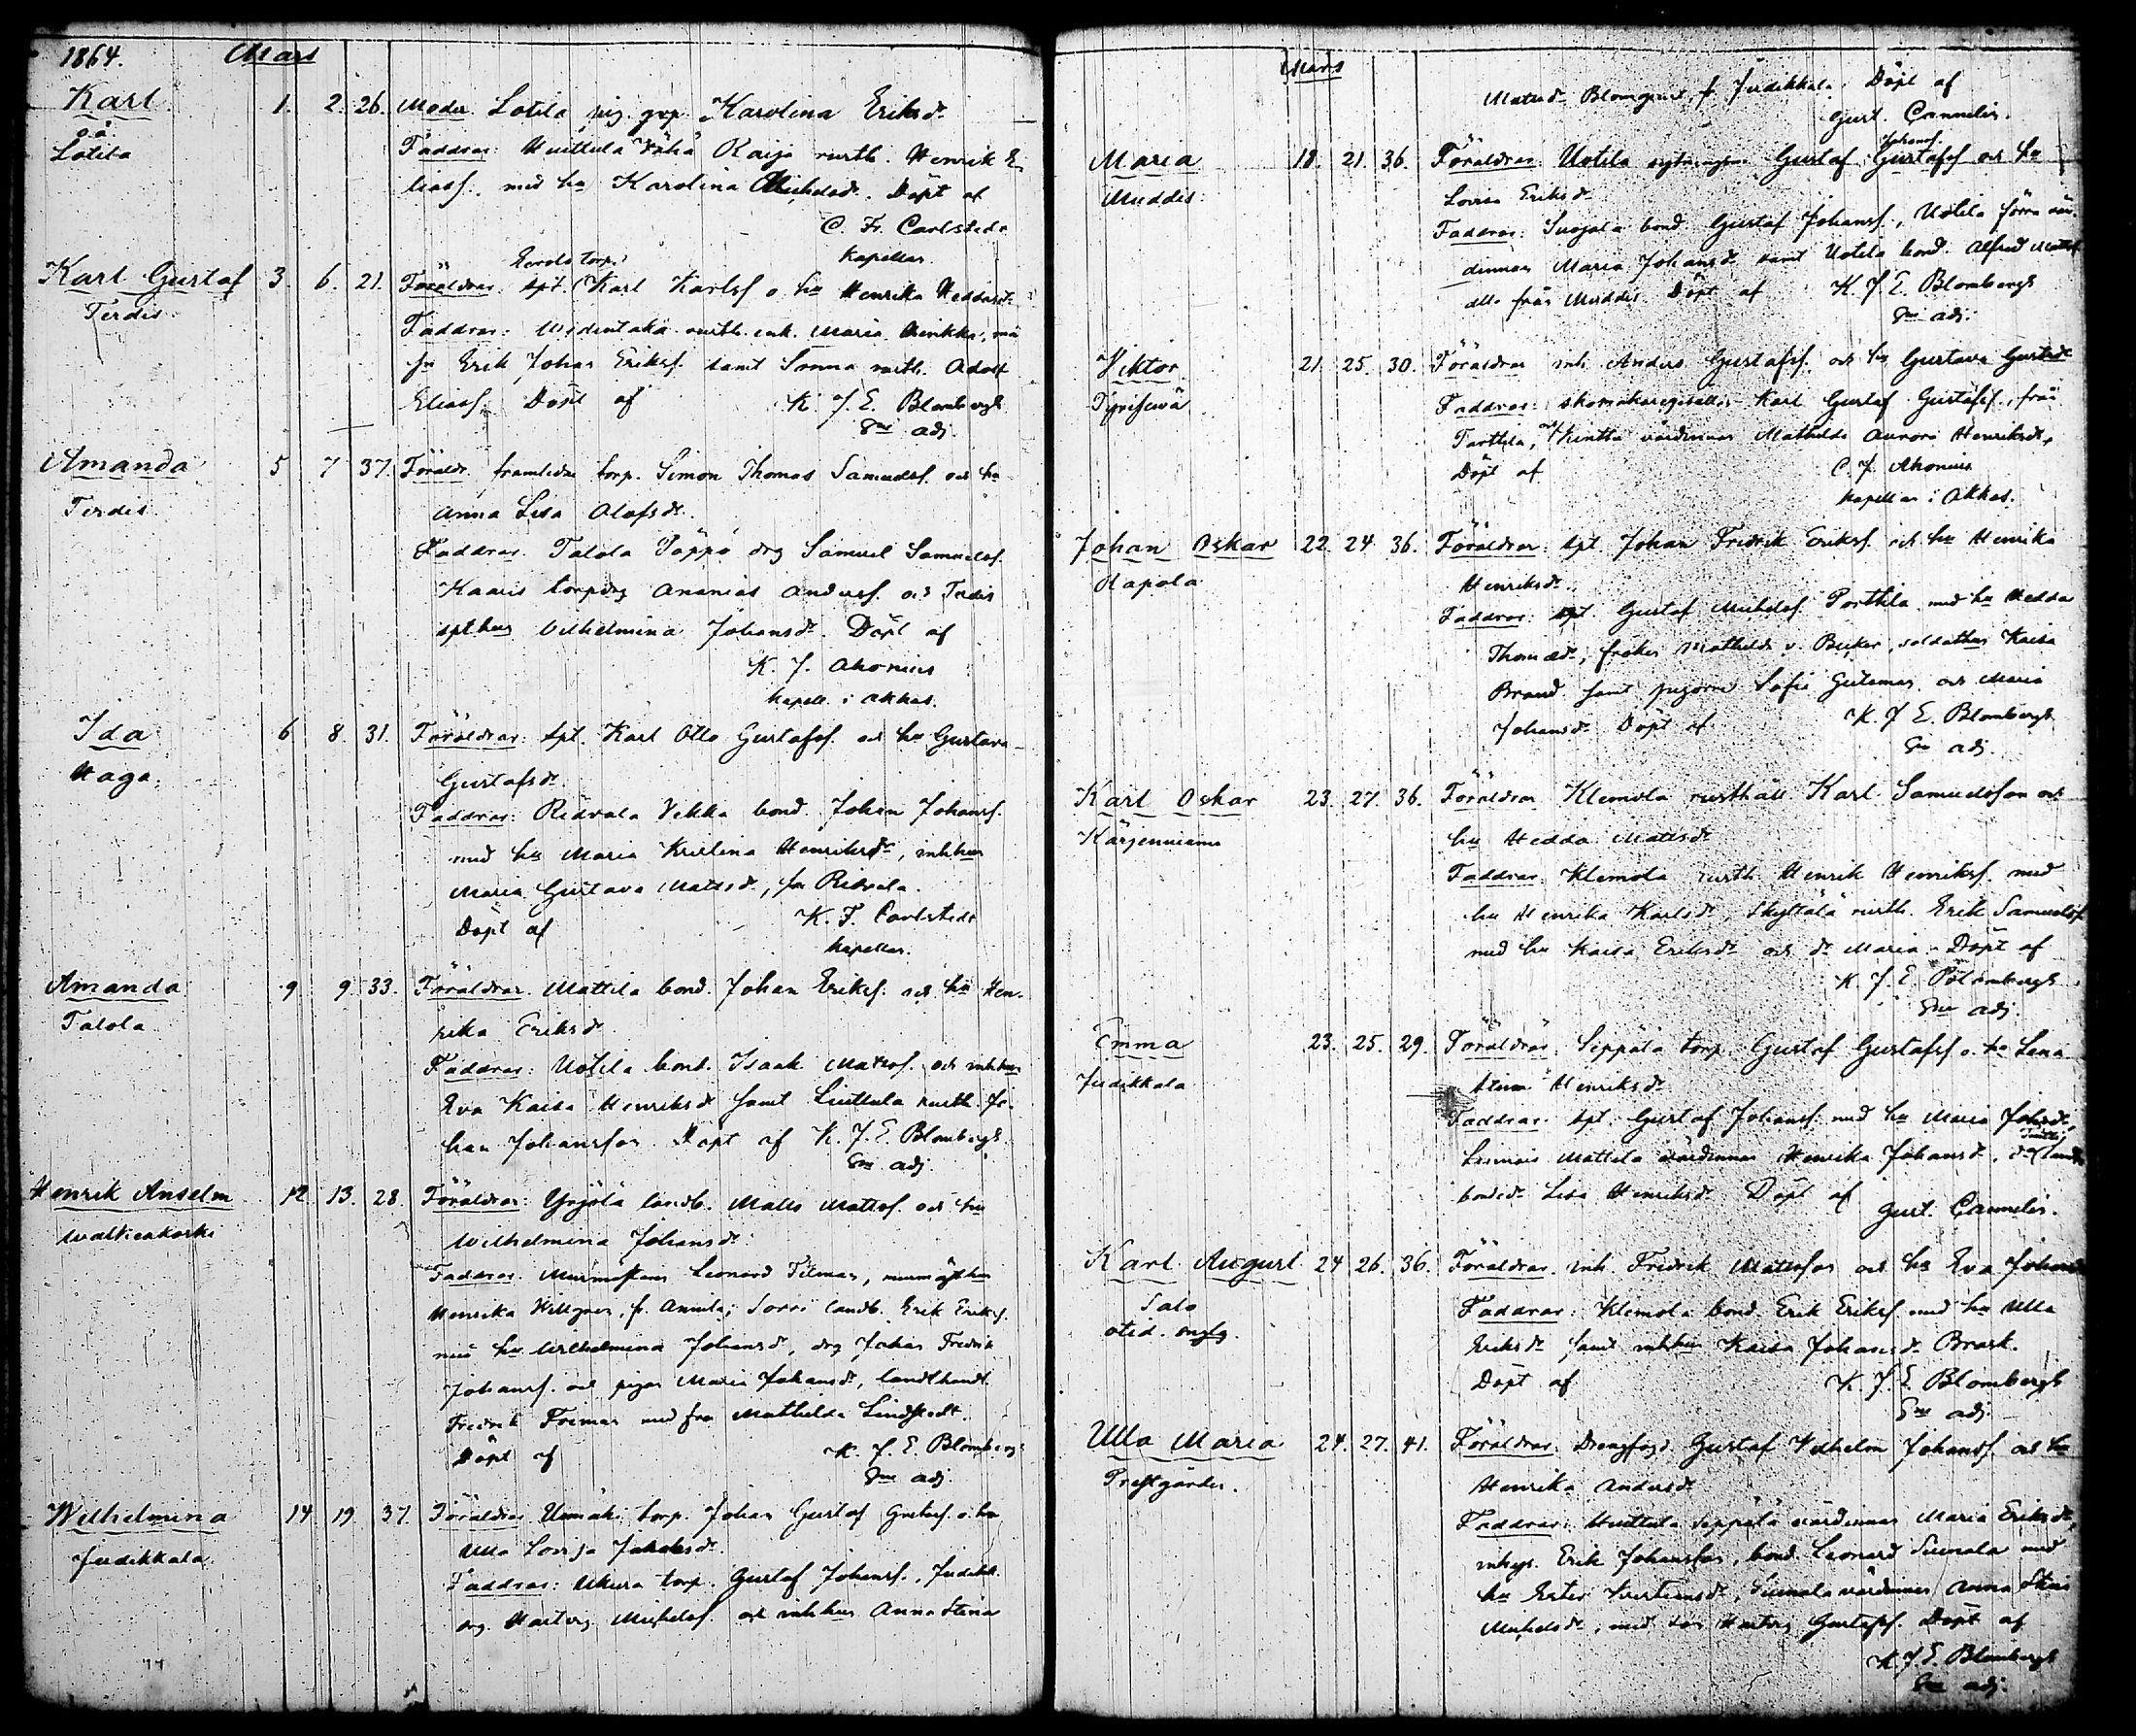 1864. Mars
Karl 1. 2. 26. Moder Lotila pig. Karolina Eriksdr
o.ä. Faddrar: Huittula Vähä Raija rusth. Henrik E-
Lotila liass. med hu Karolina Michelsdr. Döpt af
C. Fr. Carlstedt
kapellan.
Eerola torp.
Karl Gustaf 3. 6. 21. Föräldrar. spt. Karl Karlsf o. hu Henrika Heddasdr
Terdis Faddrar: Uidentaka rusth. enk. Maria
Erik Johan Eriksf. samt Sonna rusth. Adolf
Eliasf. Döpt af K. J. E. Blombergh
Em adj.
Amanda 5 7 37. Föräldr. framlidne torp. Simon Thomas Samuelsf. och hu
Terdis Anna Lisa Olofsdr.
Faddrar. Talola Pappo drg Samuel Samuelsf.
Kaaris torpdrg Ananias Andersf. och Terdis
spthus Wilhelmina Johansdr. Döpt af
K. J. Ahonius
kapell. i Akkas.
Ida 6 8. 31. Föräldrar: spt. Karl Otto Gustafsf. och hu Gustava
Haga. Gustafsdr.
Faddrar: Ridvala Vekka bond. Johan Johansf.
med hu Maria Kristina Henriksdr, inhhus
Maria Gustava Matsdr, fr Ridvala.
Döpt af K. F. Carlstedt
kapellan.
Amanda 9 9. 33. Föräldrar. Mattila bond. Johan Eriksf. och hu Hen-
Talola rika Eriksdr
Faddrar: Uotila bond. Isaak Mattsf. och inhhus
Eva Kaisa Henriksdr samt Liuttula rusth. Jo-
han Johansson. Döpt af K. J. E. Blombergh.
Em adj.
Henrik Anselm 12. 13. 28. Föräldrar: Yrjölä landb. Matts Mattsf. och hu
Walkeakoski Wilhelmina Johansdr.
Faddrar. Murmästaren Leonard Tilman, murmästhus
Henrika Hellgren, fr. Annila; Sorri landb. Erik Eriksf.
med hu Wilhelmina Johansdr, drg Johan Fredrik
Johansf. och pigan Maria Johansdr, landthandl.
Fredrik Forsman med fru Mathilda Lindstedt.
Döpt af K. J. E. Blombergh
Em adj.
Wilhelmina 14 19. 37. Föräldrar Uomäki torp. Johan Gustaf Gustafsf. o. hu
Judikkala Ulla Lovisa Jakobsdr.
Faddrar: Ukura torp. Gustaf Johansf., Judikk.
drg. Hartvig Michelsf. och inhhus Anna Stina
Mars
Matsdr Blomqvist fr Judikkala. Döpt af
Gust. Cannelin.
Johansf.
Maria 18. 21. 36. Föräldrar: Uotila sytningsm. Gustaf Gustafsf och hu
Muddis. Lovisa Eriksdr
Faddrar: Suojala bond Gustaf Johansf., Uotila förra vär-
dinnan Maria Johansdr samt Uotila bond. Alfred Mattsf.
alla från Muddis. Döpt af K. J. E. Blombergh
Em adj.
Viktor 21. 25. 30. Föräldrar inh. Anders Gustafsf. och hu Gustava Gustsdr
Tyrisevä Faddrar: skomakaregesällen Karl Gustaf Gustafsf., från
Tarttila, och Kinttu värdinnan Mathilda Aurora Henriksdr,
Döpt af C. J. Ahonius
kapellan i Akkas.
Johan Oskar 22. 24. 36. Föräldrar: spt. Johan Fredrik Eriksf. och hu Henrika
Rapola Henriksdr.
Faddrar: spt. Gustaf Michelsf. Porttila med hu Hedda
Thomasdr, fröken Mathilda v. Becker, soldathus Kaisa
Brand samt pigorna Sofia Gustafva och Maria
Johansdr Döpt af K. J. E. Blombergh
Em adj.
Karl Oskar 23. 27. 36. Föräldrar Klemola rusthåll. Karl Samuelsson och
Kärjenniemi hu Hedda Mattsdr
Faddrar: Klemola rusth. Henrik Henriksf. med
hu Henrika Karlsdr, Skyttälä rusth. Erik Samuelsf.
med hu Kaisa Eriksdr och dr Maria. Döpt af
K. J. E. Blombergh.
Em adj.
Emma 23. 25. 29. Föräldrar. Seppälä torp. Gustaf Gustafsf o. hu Lena
Judikkala Stina Henriksdr
Faddrar: spt. Gustaf Johansf. med hu Maria Johsdr,
Mattila värdinnan Henrika Johansdr,
bondedr Lisa Henriksdr. Döpt af Gust. Cannelin.
Karl August 24. 26. 36. Föräldrar. inh. Fredrik Mattsson och hu Eva Johansdr
Salo Faddrar: Klemola bond. Erik Eriksf. med hu Ulla
Eriksdr samt inhhus Kaisa Johansdr Brask.
Döpt af K. J. E. Blombergh
Em adj.
Ulla Maria 24. 27. 41. Föräldrar. Drengfogd. Gustaf Wilhelm Johansf. och hu
Prestgården. Henrika Andersdr
Faddrar: Huittula Seppälä värdinnan Maria Eriksdr,
Erik Johansson, bond. Leonard Sunala med
hu Ester, Sunala värdinnan Anna Stina
Michelsdr, med son Hartvig Gustafsf. Döpt af
K. J. E. Blombergh
Em adj.